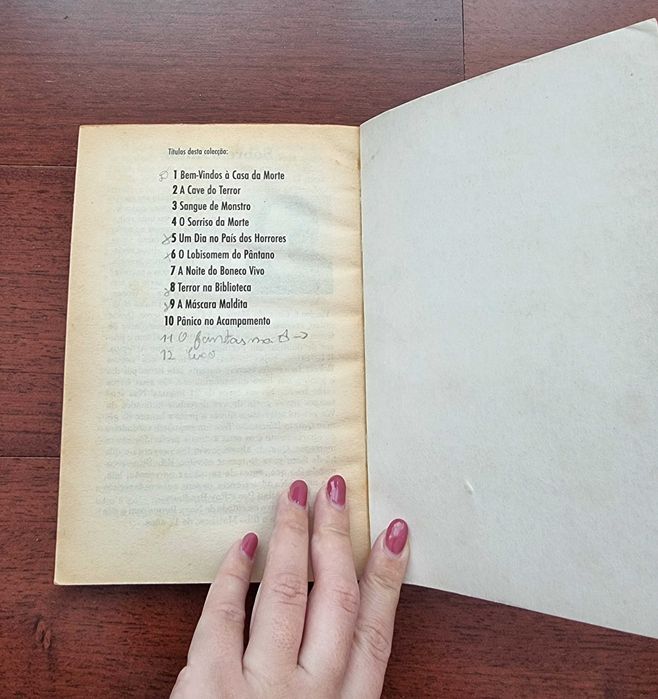 Títulos desta colecção:
1 Bem-Vindos à Casa da Morte
2 A Cave do Terror
3 Sangue de Monstro
4 O Sorriso da Morte
5 Um Dia no País dos Horrores
6 O Lobisomem do Pântano
7 A Noite do Boneco Vivo
8 Terror na Biblioteca
9 A Máscara Maldita
10 Pânico no Acampamento
11 O
12